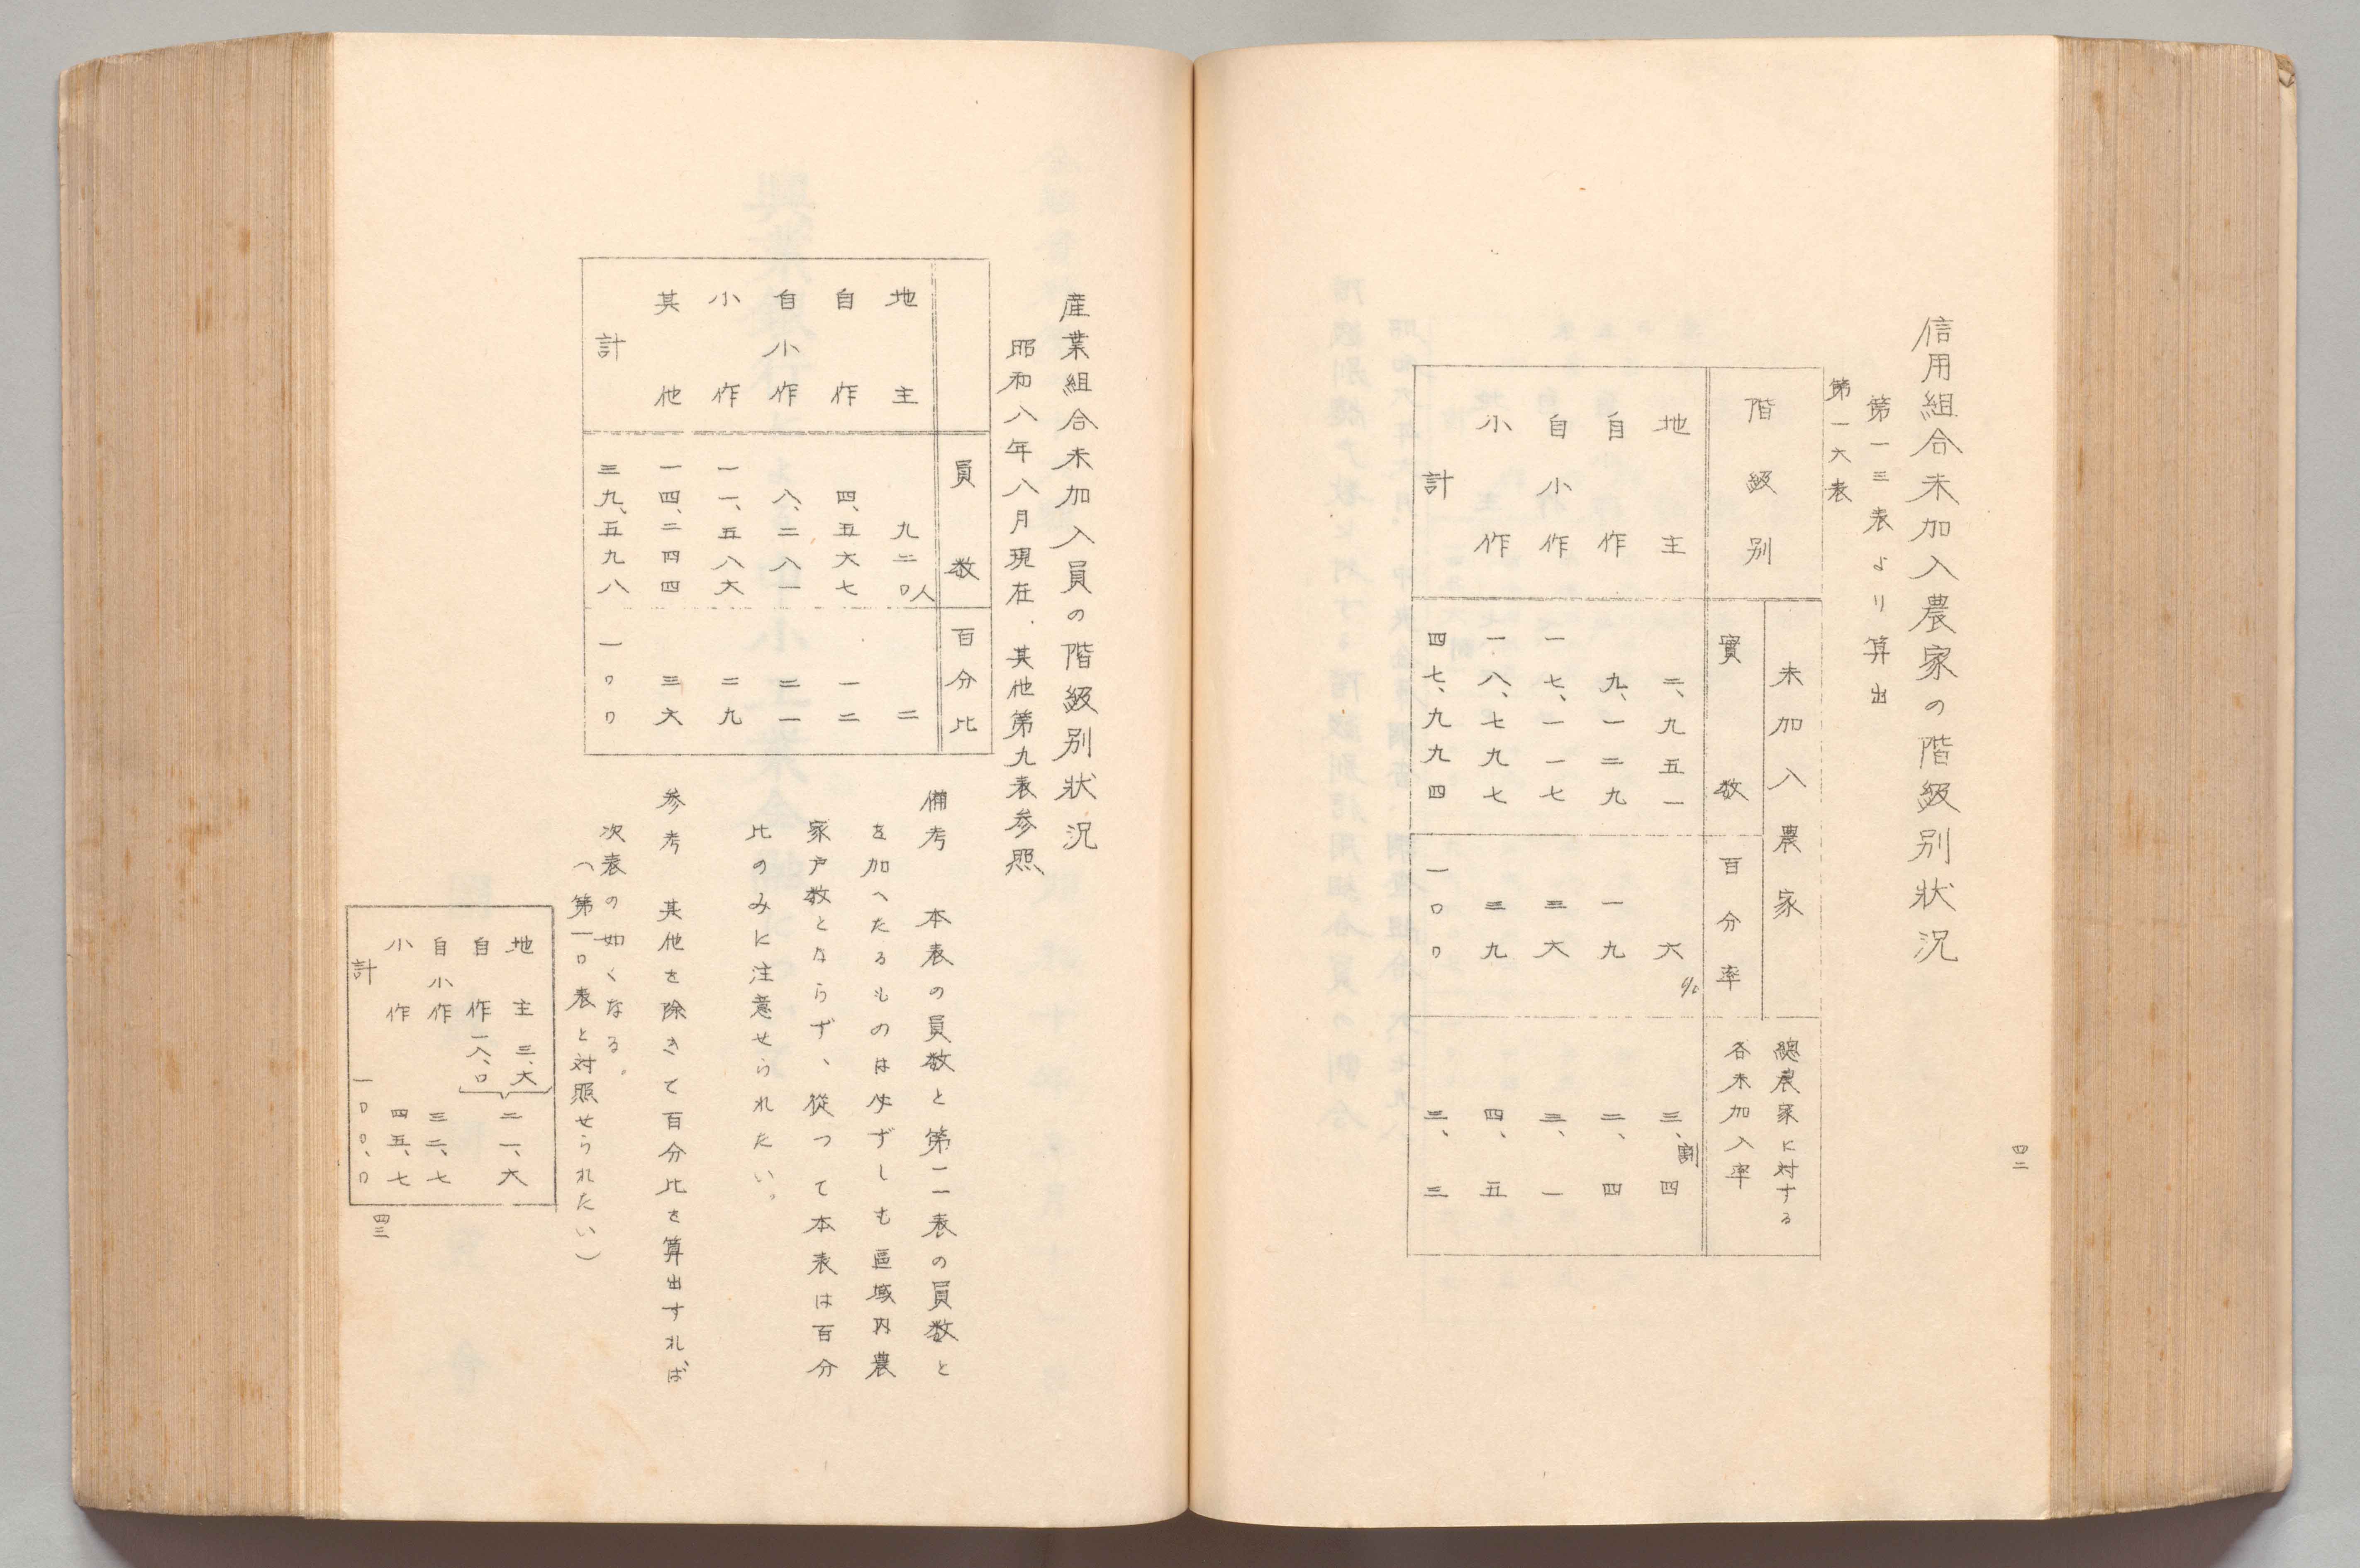 四二
信用組合未加入農家の階級別狀況
第一三表より算出
第一六表
階級別
未加入農家
實數
百分率
總農家に対する
各未加入率
地主 二、九五一 六% 三、四割
自作 九、一二九 一九 二、四
自小作 一七、一一七 三六 三、一
小作 一八、七九七 三九 四、五
計 四七、九九四 一〇〇 三、三
産業組合未加入員の階級別狀況
昭和八年八月現在．其他第九表参照
員數 百分比
地主 九二〇人 二
自作 四、五六七 一二
自小作 八、二八一 二一
小作 一一、五八六 二九
其他 一四、二四四 三六
計 三九、五九八 一〇〇
備考 本表の員数と第一一表の員数と
を加へたるものは必ずしも區域内農
家戸数とならず、從つて本表は百分
比のみに注意せられたい。
参考 其他を除きて百分比を算出すれば
次表の如くなる。
（第一〇表と対照せられたい）
地主 三、六
自作 一八、〇
二一、六
自小作 三二、七
小作 四五、七
計 一〇〇、〇
四三